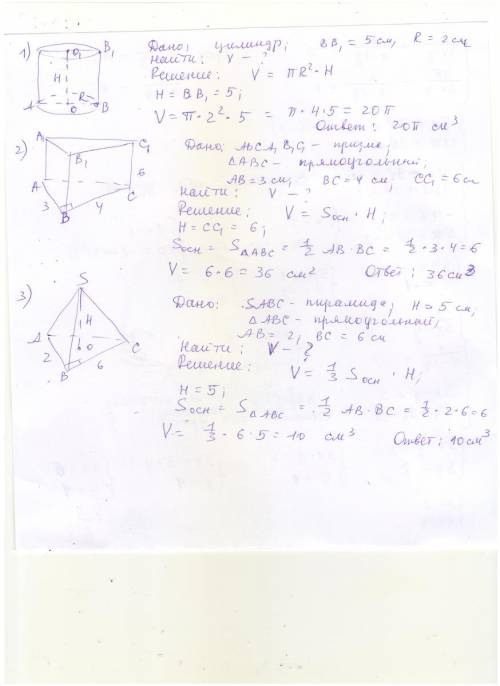 1) Дано: цилиндр; BB₁ = 5 см, R = 2 см
Найти: V - ?
Решение: V = πR² · H
H = BB₁ = 5;
V = π · 2² · 5 = π · 4 · 5 = 20π
Ответ: 20π см³
O₁ B₁
H
R
A O B
2) Дано: ABCA₁B₁C₁ - призма;
△ABC - прямоугольный;
AB = 3 см, BC = 4 см, CC₁ = 6 см
Найти: V - ?
Решение: V = Sосн · H;
H = CC₁ = 6;
Sосн = S△ABC = 1/2 AB · BC = 1/2 · 3 · 4 = 6
V = 6 · 6 = 36 см² Ответ: 36 см³
A₁ C₁
B₁
A 6
C
3 4
B
3) Дано: SABC - пирамида; H = 5 см,
△ABC - прямоугольный,
AB = 2, BC = 6 см
Найти: V - ?
Решение: V = 1/3 Sосн · H;
H = 5;
Sосн = S△ABC = 1/2 AB · BC = 1/2 · 2 · 6 = 6
V = 1/3 · 6 · 5 = 10 см³ Ответ: 10 см³
S
H
A O C
2
B 6